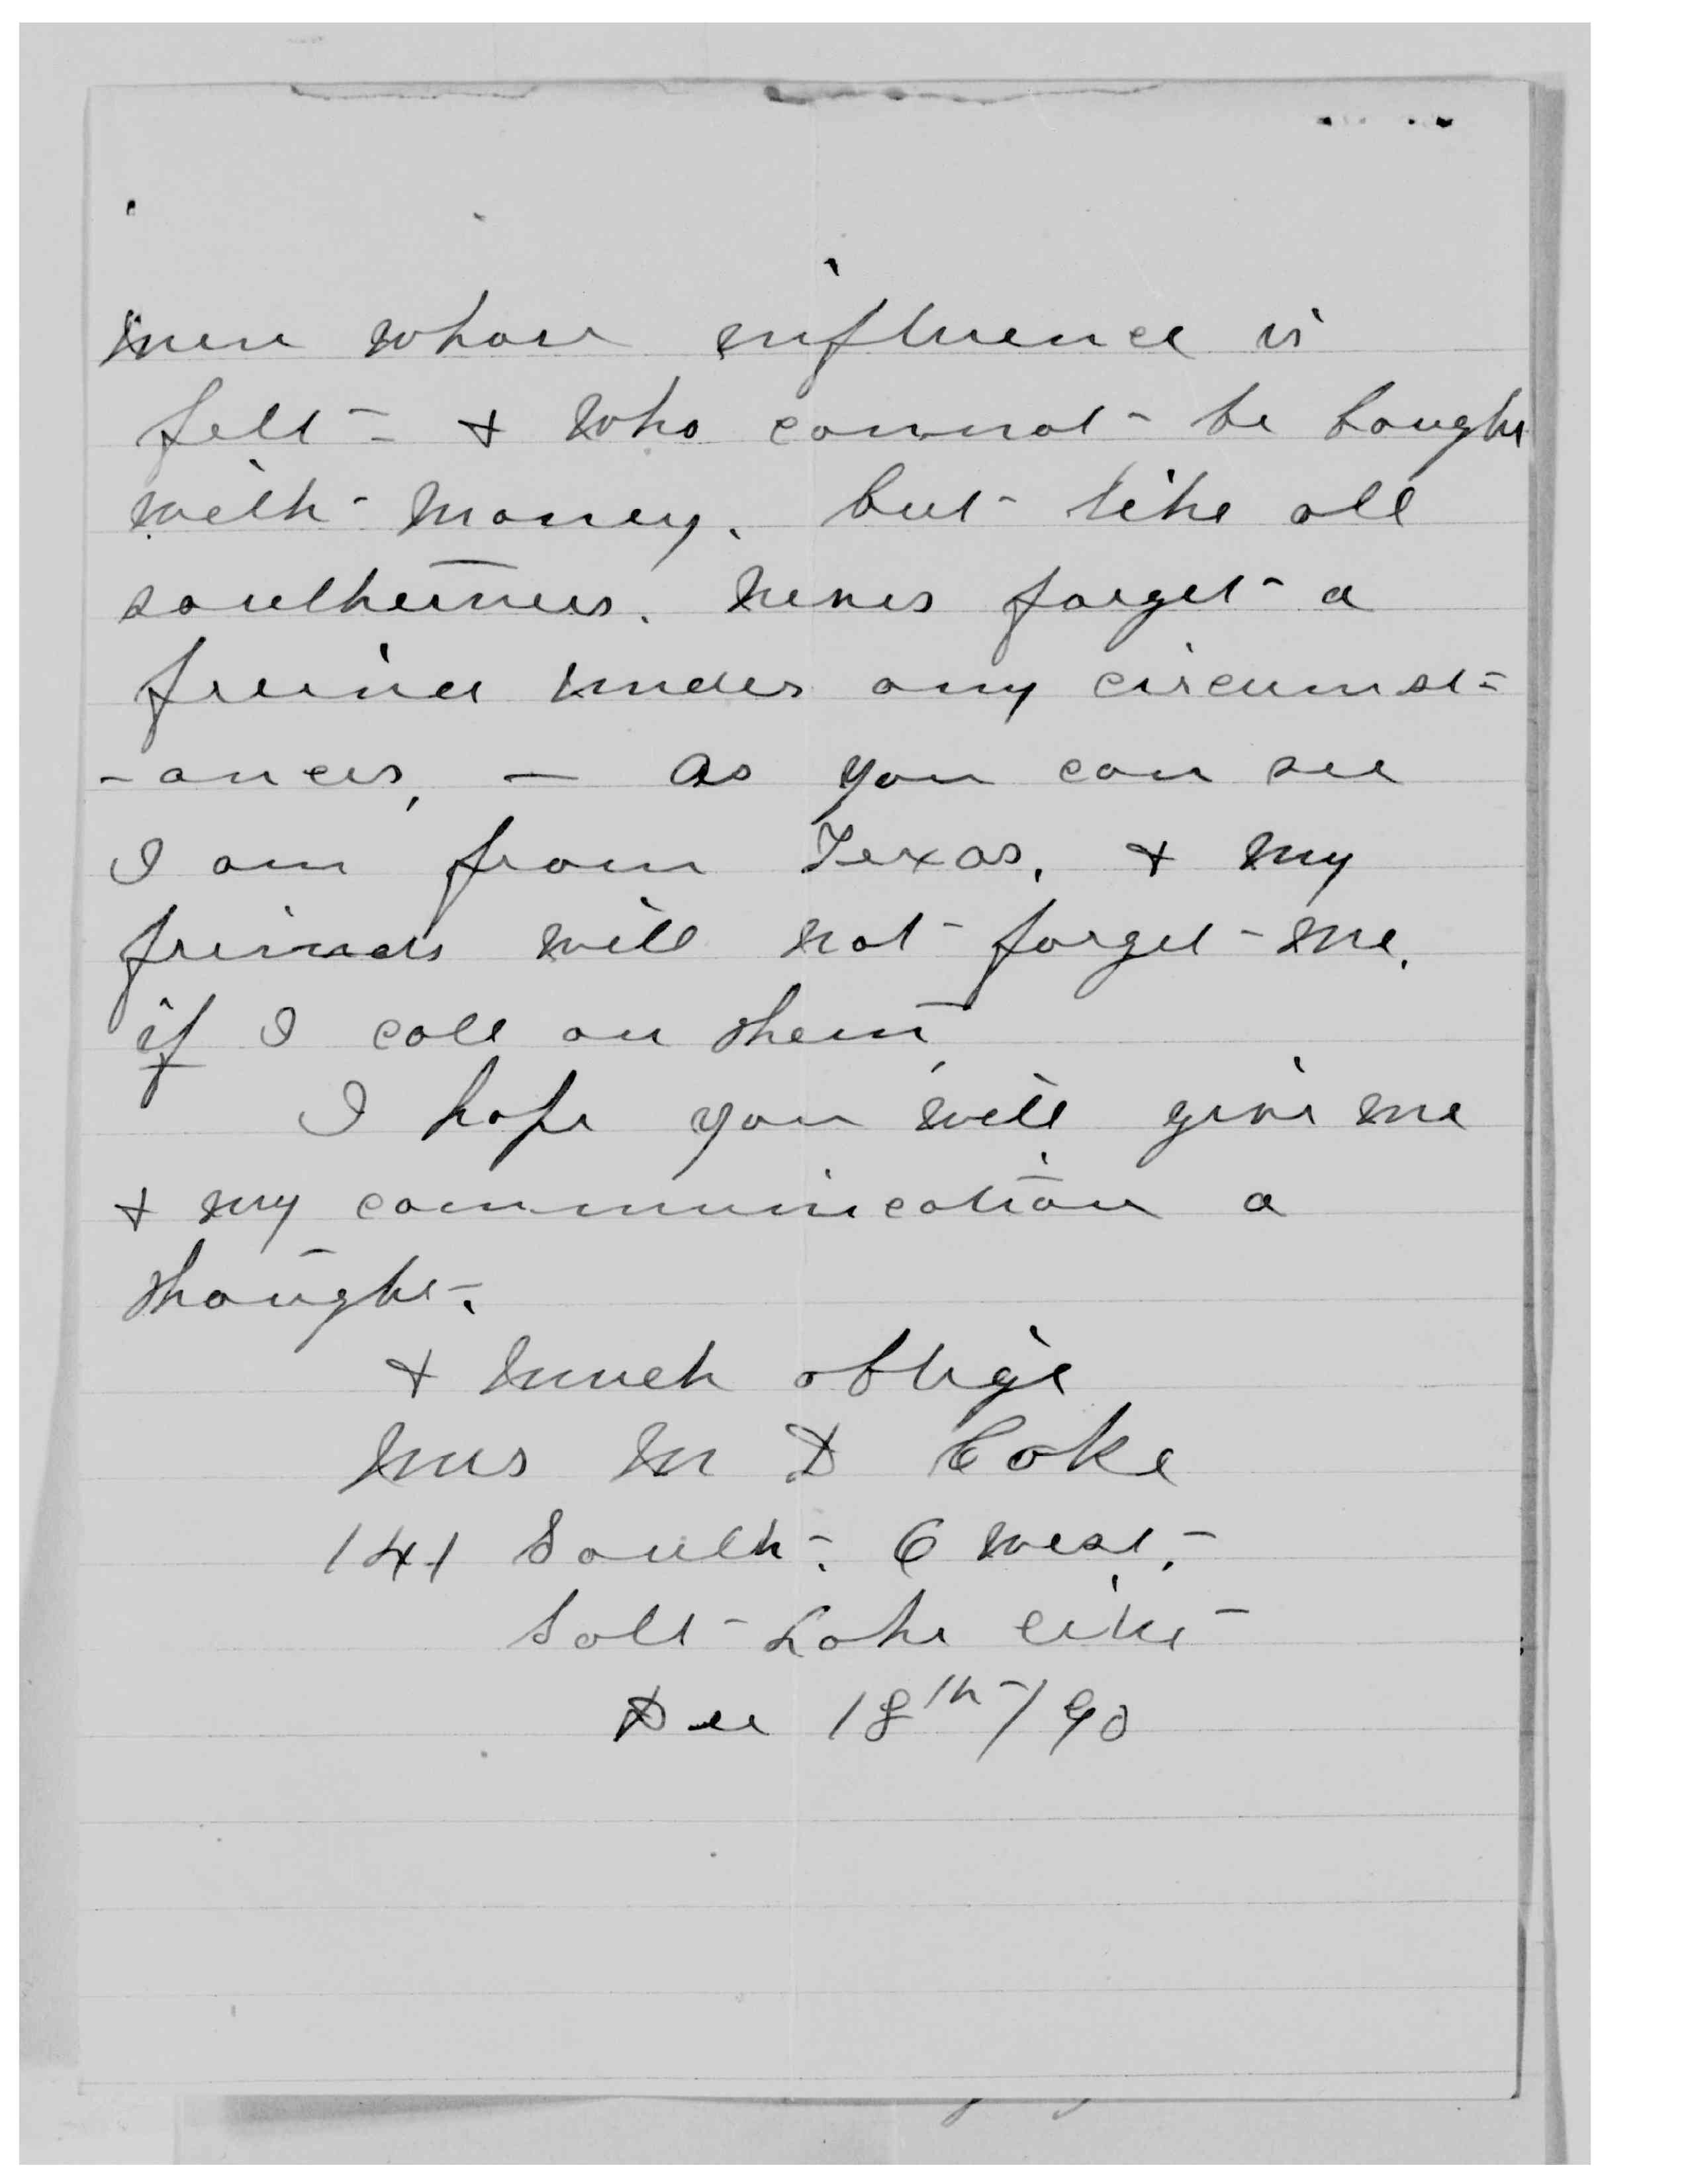 men whose influence is
felt - & who cannot be bought
with money. but like all
southerners. never forget a
freind under any circumst=
-ances, - as you can see
I am from Texas, & my
freinds will not forget me.
if I call on them,
I hope you will give me
& my communication a
thought.
& much oblige
Mrs M D Coke
141 South. 6 west.
Salt Lake City
Dec 18th/90